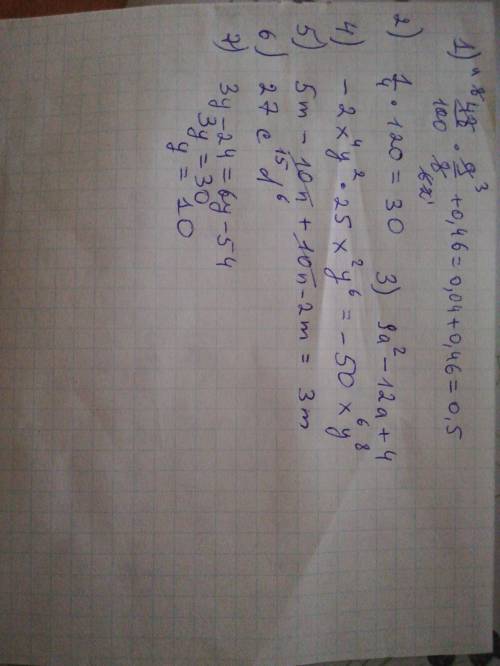 1) 48/100 · 8³/ + 0,46 = 0,04 + 0,46 = 0,5
2) 1/4 · 120 = 30 3) 9a² - 12a + 4
4) - 2x⁴y² · 25x²y⁶ = - 50x⁶y⁸
5) 5m - 10n + 10n - 2m = 3m
6) 27c¹⁵d⁶
7) 3y - 24 = 6y - 54
3y = 30
y = 10